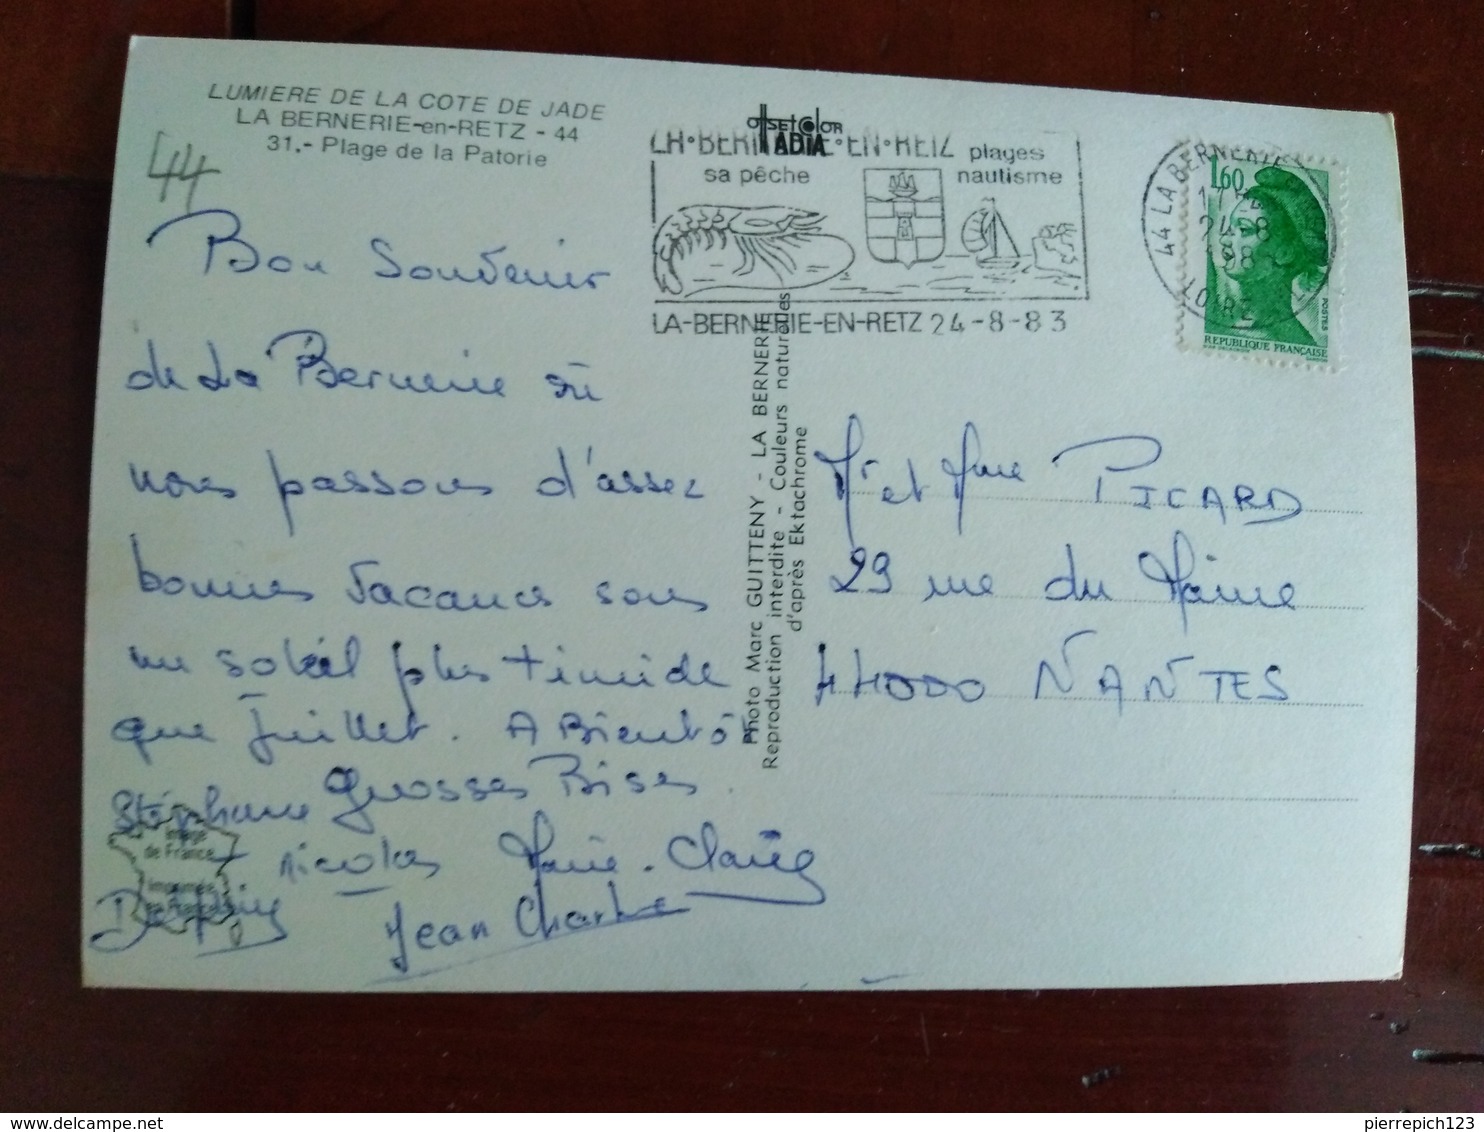 LUMIERE DE LA COTE DE JADE
LA BERNERIE-en-RETZ - 44
31.- Plage de la Patorie
44
Bon Souvenir
de La Bernerie où
nous passons d'assez
bonnes vacances sous
un soleil plus timide
que Juillet. A Bientôt
Grosses Bises.
Stéphane
Nicolas Marie-Claire
Delphine
Jean Charles
Image
de France
Imprimée
en France
OFFSET COLOR
ADIA
LA·BERNERIE·EN·RETZ
plages
sa pêche
nautisme
LA-BERNERIE-EN-RETZ 24-8-83
44 LA BERNERIE
24-8
LOIRE
1,60
POSTES
REPUBLIQUE FRANÇAISE
Photo Marc GUITTENY - LA BERNERIE
Reproduction interdite - Couleurs naturelles
d'après Ektachrome
Mr et Mme PICARD
29 rue du Maine
44000 NANTES
delcampe.net
pierrepich123